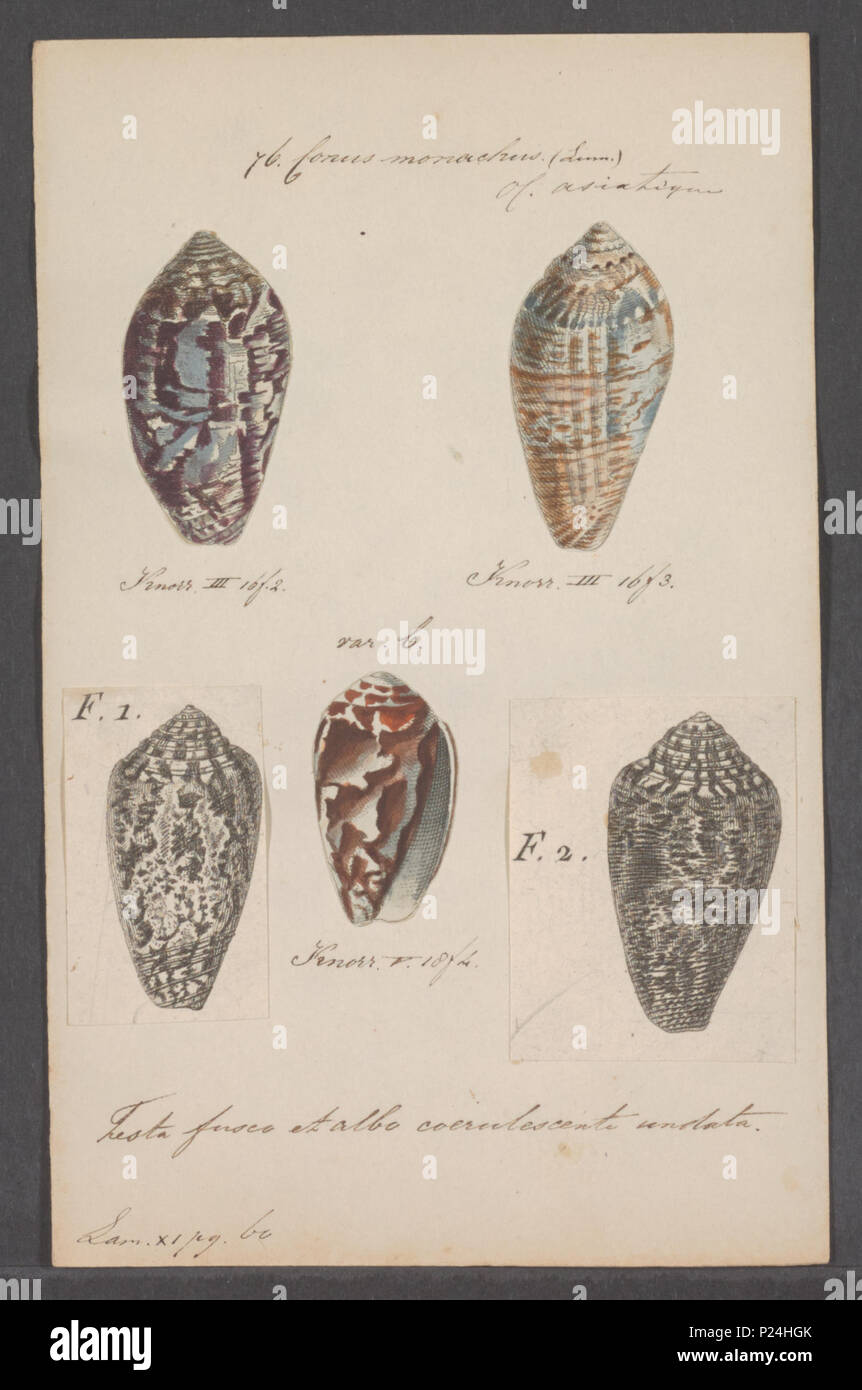 76. Conus monachus. (Linn.)
Oc. asiatique
Knorr. III 16 f. 2.
Knorr. III 16 f 3.
var. b.
F. 1.
F. 2.
Knorr. V. 18 f 4.
Testa fusco et albo coerulescenti undata.
Lam. XI pg. 60
alamy
Image ID: P24HGK
www.alamy.com